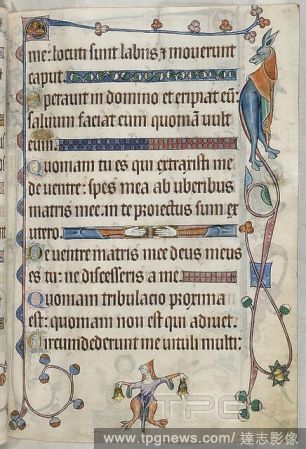 me: locuti sunt labiis & mouerunt
caput.
Sperauit in domino et eripiat eū:
saluum faciat eum quoniā uult
eum.
Quoniam tu es qui extraxisti me
de uentre: spes mea ab uberibus
matris mee. in te proiectus sum ex
utero.
De uentre matris mee deus meus
es tu: ne discesseris a me.
Quoniam tribulacio proxima
est: quoniam non est qui adiuuet.
Circumdederunt me uituli multi:
TPG
www.tpgnews.com/達志影像